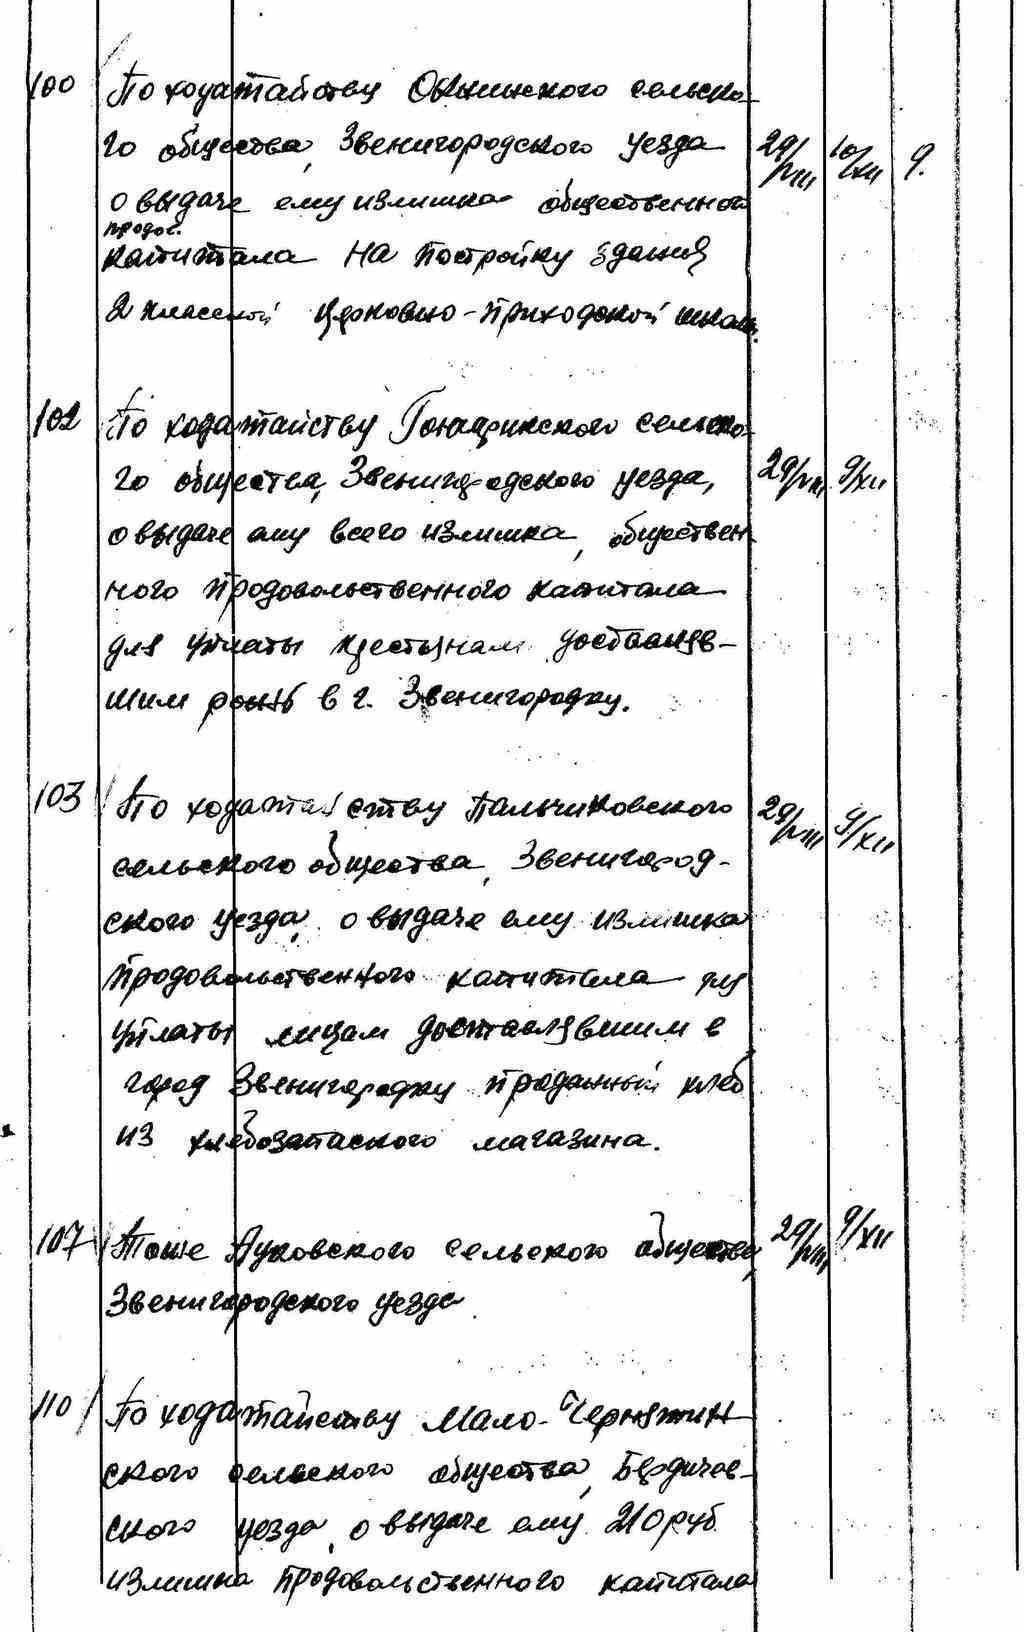 100 По ходатайству сельско-
го общества, Звенигородского уезда 29/VIII 10/XII 9.
о выдаче ему излишка общественного
продов.
капитала на постройку здания
2 классной церковно-приходской школы.
102 По ходатайству сельско-
го общества, Звенигородского уезда, 29/VIII 9/XII
о выдаче ему всего излишка, обществен-
ного продовольственного капитала
для уплаты крестьянам доставляв-
шим рожь в г. Звенигородку.
103 По ходатайству Пальчиковского 29/VIII 9/XII
сельского общества, Звенигород-
ского уезда, о выдаче ему излишка
продовольственного капитала для
уплаты лицам доставлявшим в
город Звенигородку проданный хлеб
из хлебозапасного магазина.
107 Тоже Луковского сельского общества, 29/VIII 9/XII
Звенигородского уезда
110 По ходатайству Мало-Чернятин
ского сельского общества, Бердичев-
ского уезда, о выдаче ему 210 руб.
излишка продовольственного капитала